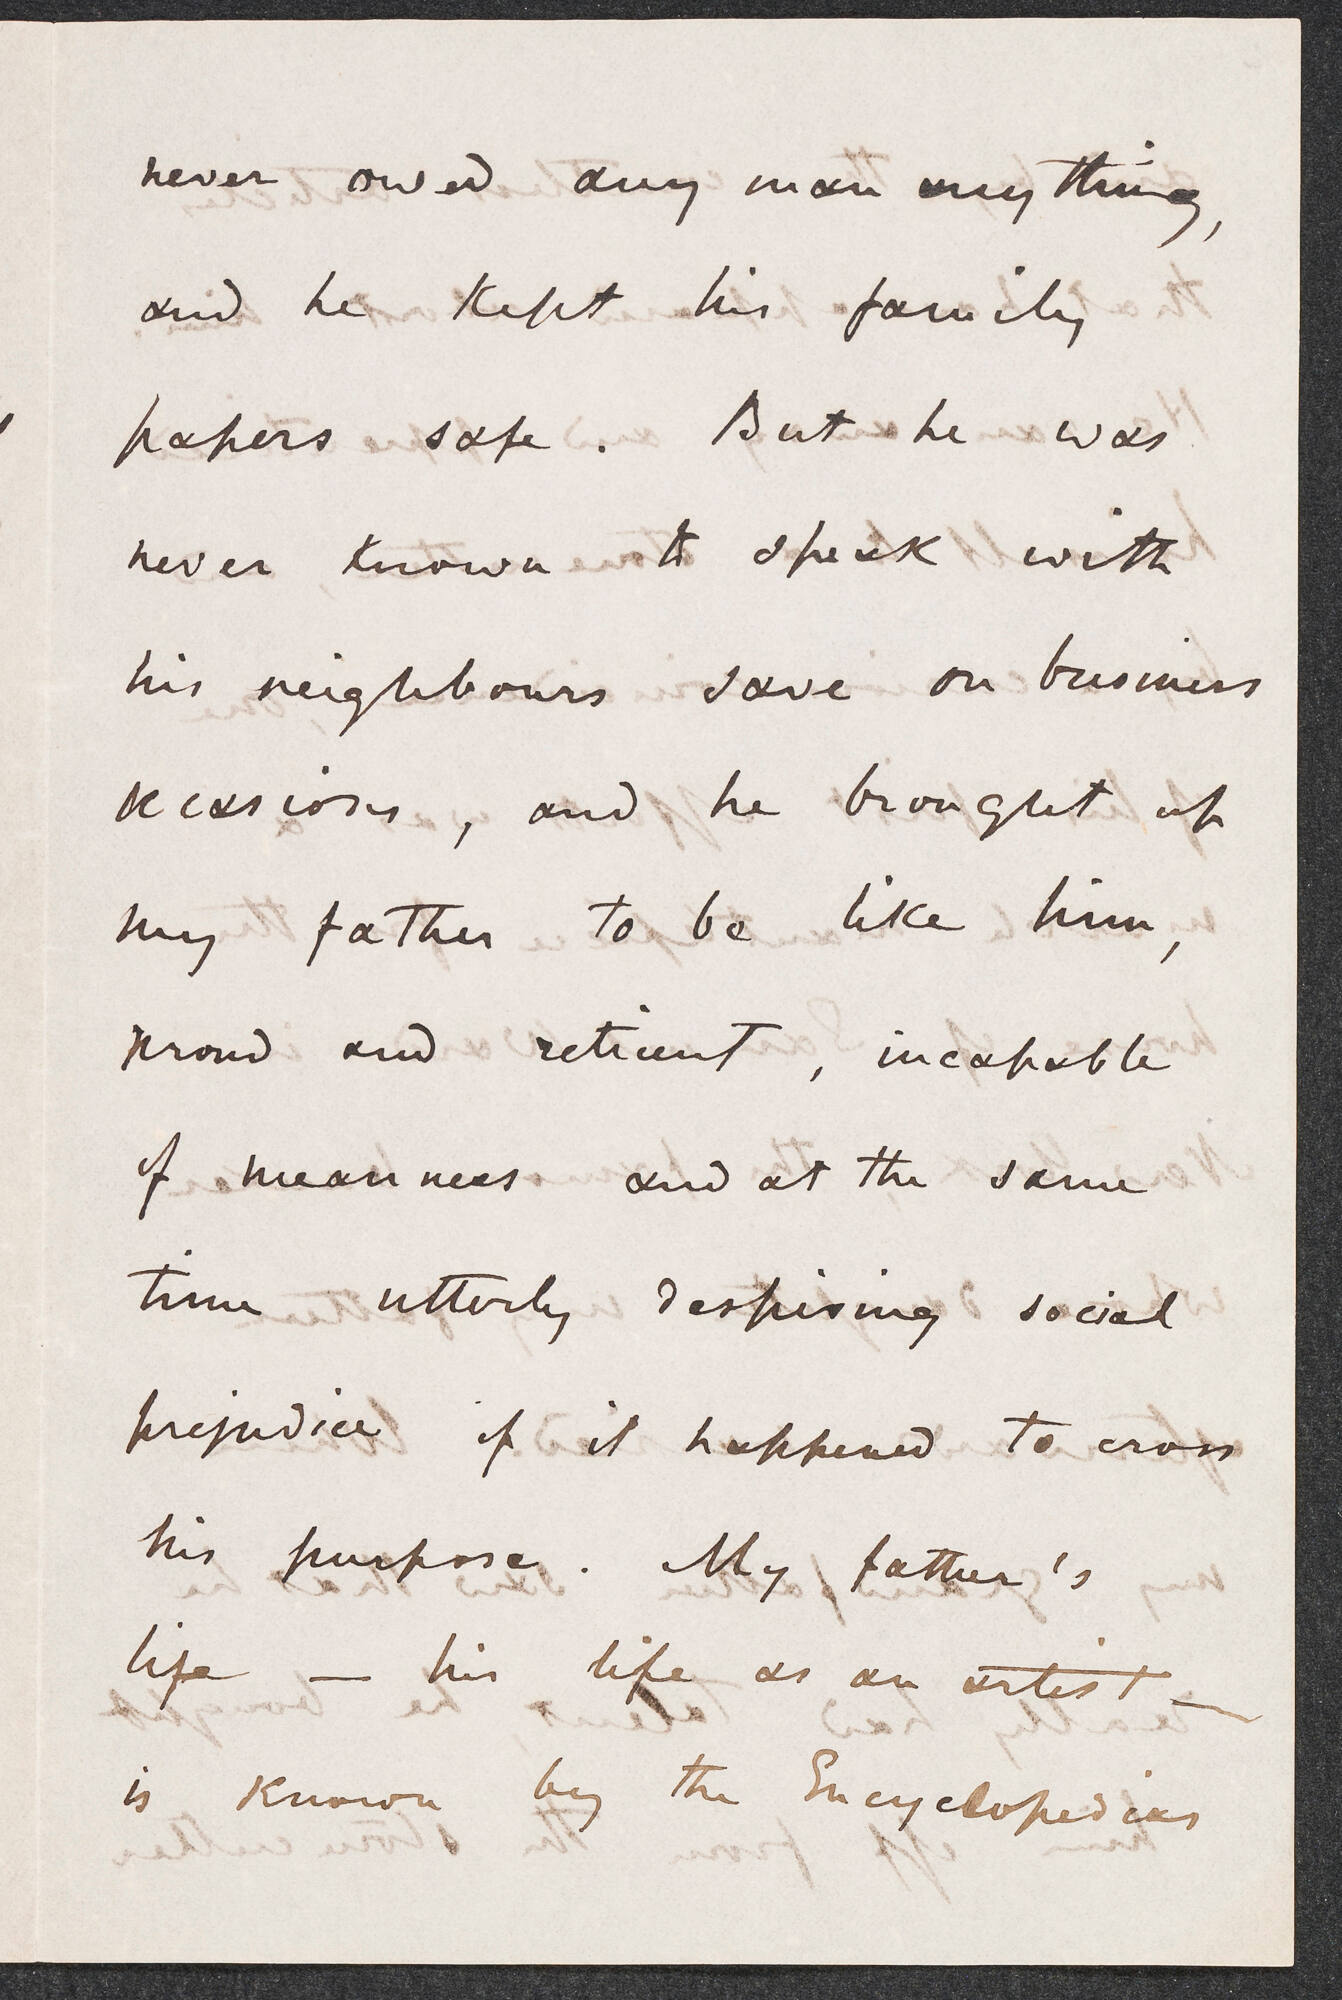 never owed any man anything,
and he kept his family
papers safe. But he was
never known to speak with
his neighbours save on business
occasions, and he brought up
my father to be like him,
proud and reticent, incapable
of meanness and at the same
time utterly despising social
prejudice if it happened to cross
his purpose. My father's
life — his life as an artist —
is known by the Encyclopedias